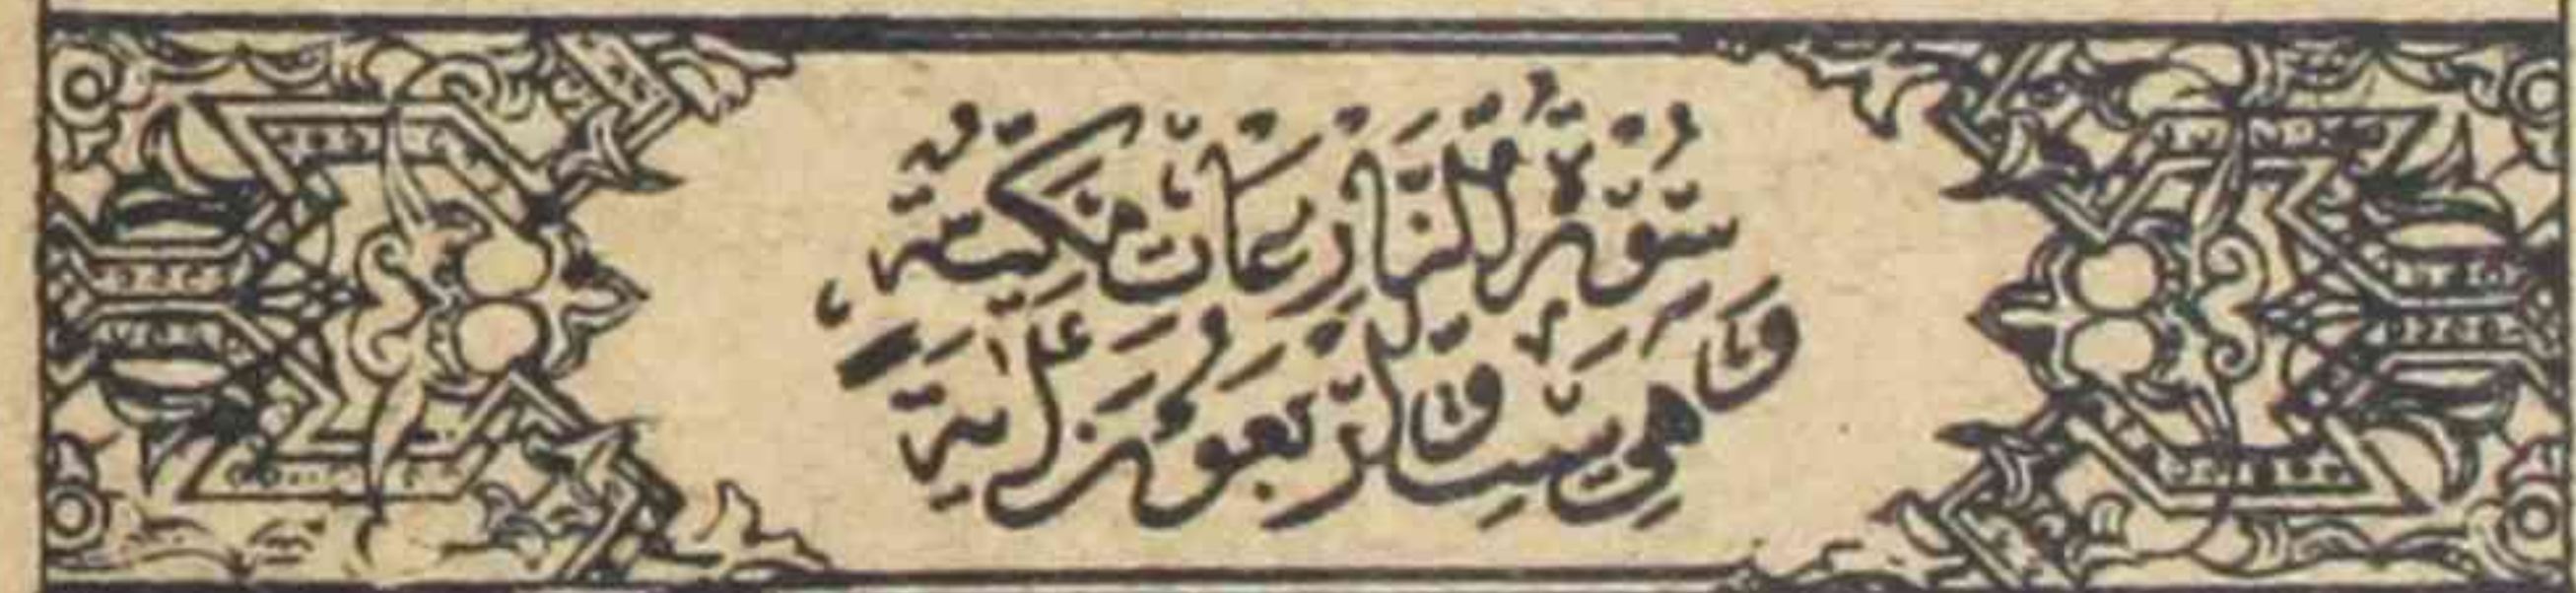 سُوْرَةُ النَّازِعَاتِ مَكِّيَّةٌ
وَهِيَ سِتٌّ وَّاَرْبَعُوْنَ اٰيَةً